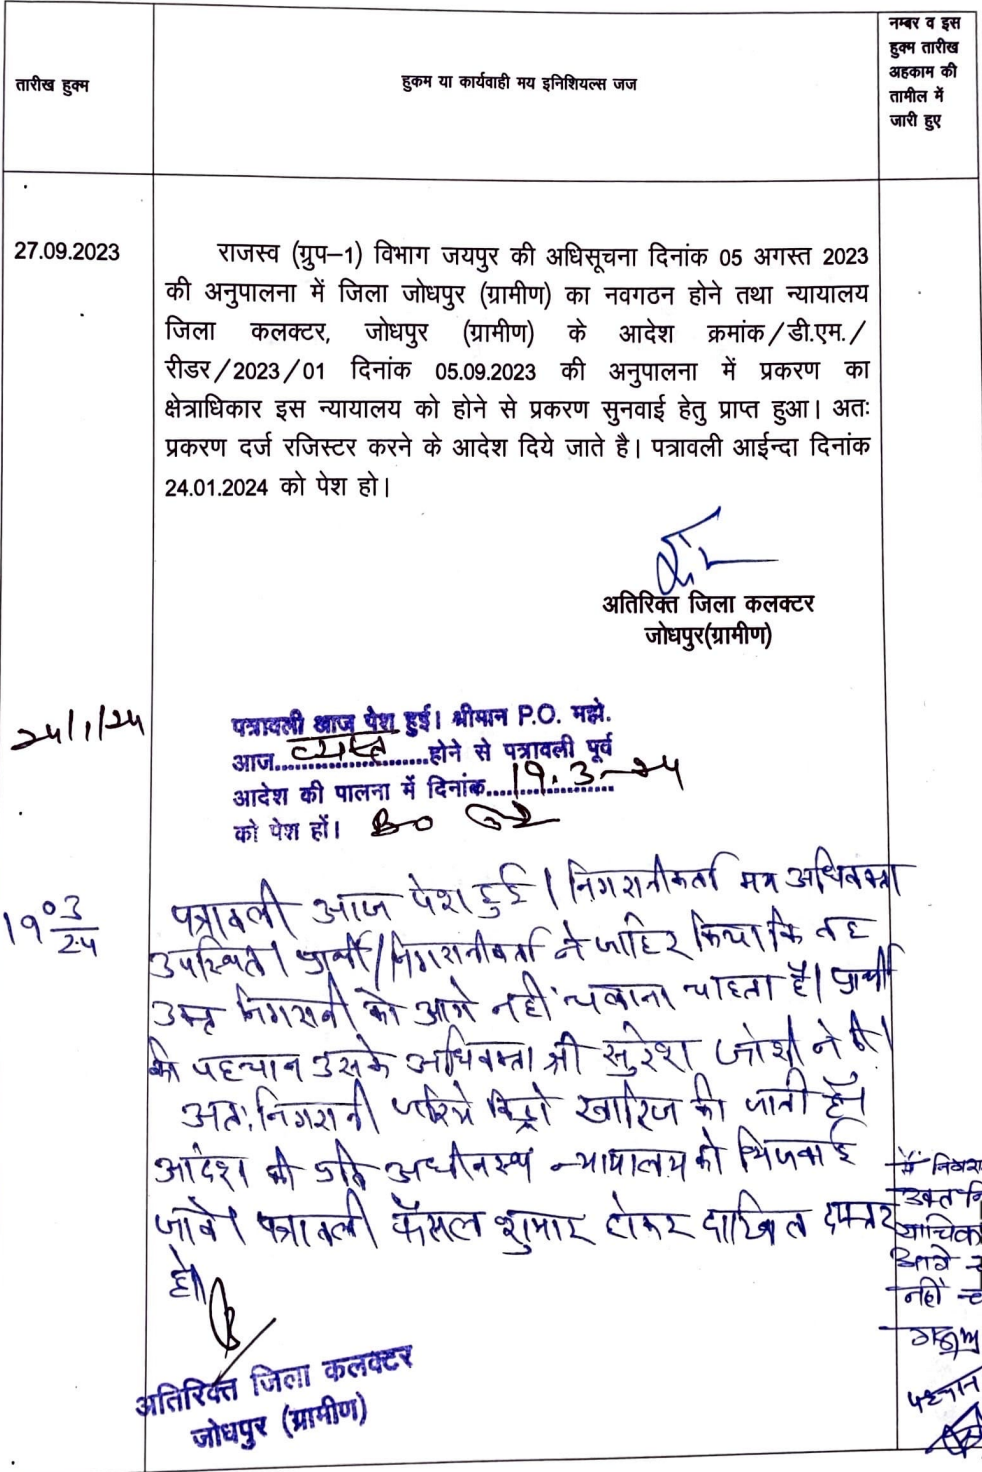 तारीख हुक्म
हुकम या कार्यवाही मय इनिशियल्स जज
नम्बर व इस
हुक्म तारीख
अहकाम की
तामील में
जारी हुए
27.09.2023
राजस्व (ग्रुप–1) विभाग जयपुर की अधिसूचना दिनांक 05 अगस्त 2023
की अनुपालना में जिला जोधपुर (ग्रामीण) का नवगठन होने तथा न्यायालय
जिला कलक्टर, जोधपुर (ग्रामीण) के आदेश क्रमांक/डी.एम./
रीडर/2023/01 दिनांक 05.09.2023 की अनुपालना में प्रकरण का
क्षेत्राधिकार इस न्यायालय को होने से प्रकरण सुनवाई हेतु प्राप्त हुआ। अतः
प्रकरण दर्ज रजिस्टर करने के आदेश दिये जाते है। पत्रावली आईन्दा दिनांक
24.01.2024 को पेश हो।
अतिरिक्त जिला कलक्टर
जोधपुर(ग्रामीण)
24/1/24
पत्रावली आज पेश हुई। श्रीमान P.O. महो.
आज व्यस्त होने से पत्रावली पूर्व
आदेश की पालना में दिनांक 19.3-24
को पेश हों।
19 03/24
पत्रावली आज पेश हुई। निगरानीकर्ता मय अधिवक्ता
उपस्थित। प्रार्थी/निगरानीकर्ता ने जाहिर किया कि वह
उक्त निगरानी को आगे नहीं चलाना चाहता है। प्रार्थी
की पहचान उसके अधिवक्ता श्री सुरेश जोशी ने की।
अतः निगरानी जरिये विड्रो खारिज की जाती है।
आदेश की प्रति अधीनस्थ न्यायालय को भिजवाई
जावे। पत्रावली फैसल शुमार होकर दाखिल दफ्तर
हो।
मैं निगरा
उक्त नि
याचिका
आगे
नहीं च
पहचान
अतिरिक्त जिला कलक्टर
जोधपुर (ग्रामीण)